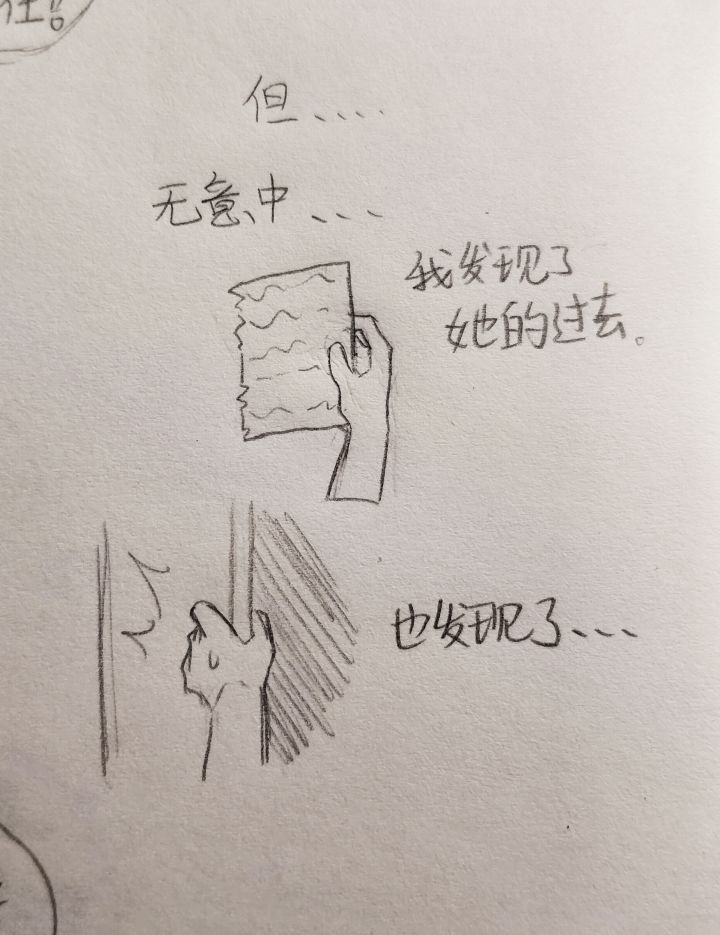 但....
无意中...
我发现了
她的过去。
也发现了...